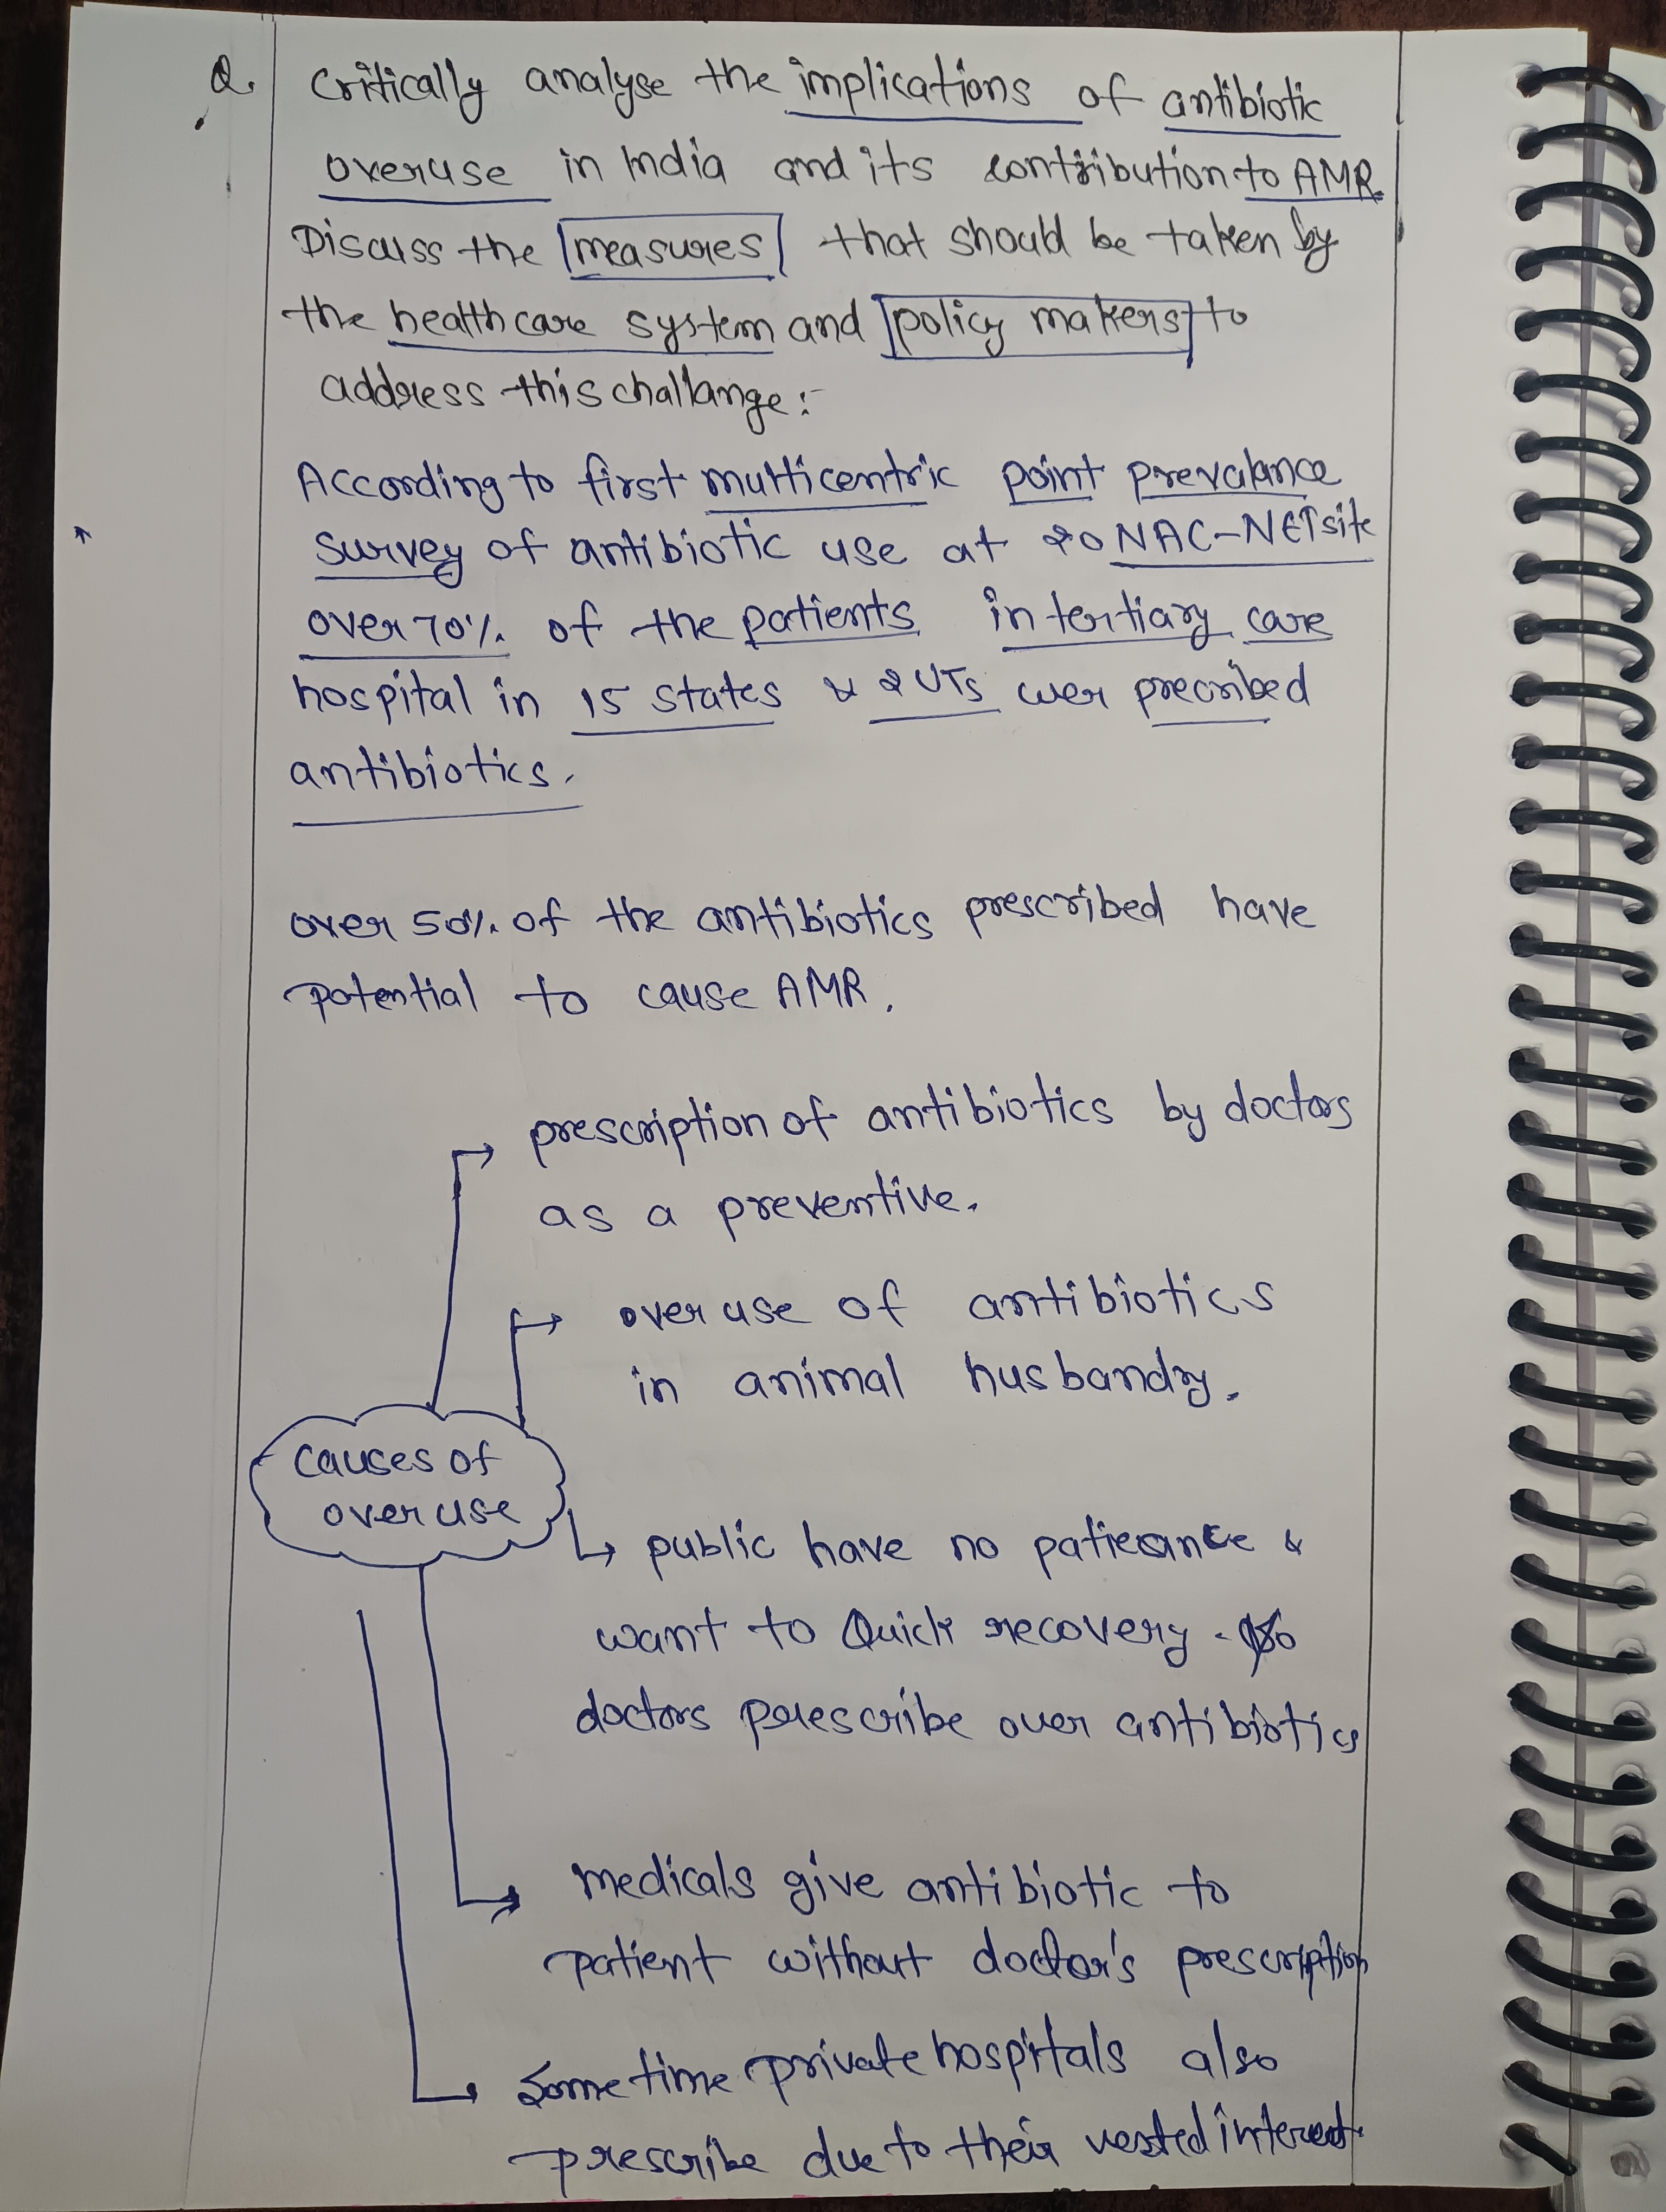 Q. Critically analyse the implications of antibiotic
overuse in India and its contribution to AMR.
Discuss the measures that should be taken by
the healthcare system and policy makers to
address this challange:-
According to first multicentric point prevalance
survey of antibiotic use at 20 NAC-NET site
over 70% of the patients in tertiary care
hospital in 15 states & 2 UTs wer precribed
antibiotics.
over 50% of the antibiotics prescribed have
potential to cause AMR.
prescription of antibiotics by doctors
as a preventive.
overuse of antibiotics
in animal husbandry.
causes of
overuse
public have no patieance &
want to Quick recovery. so
doctors prescribe over antibiotics
medicals give antibiotic to
patient without doctor's prescription
Sometime private hospitals also
prescribe due to their vested interest